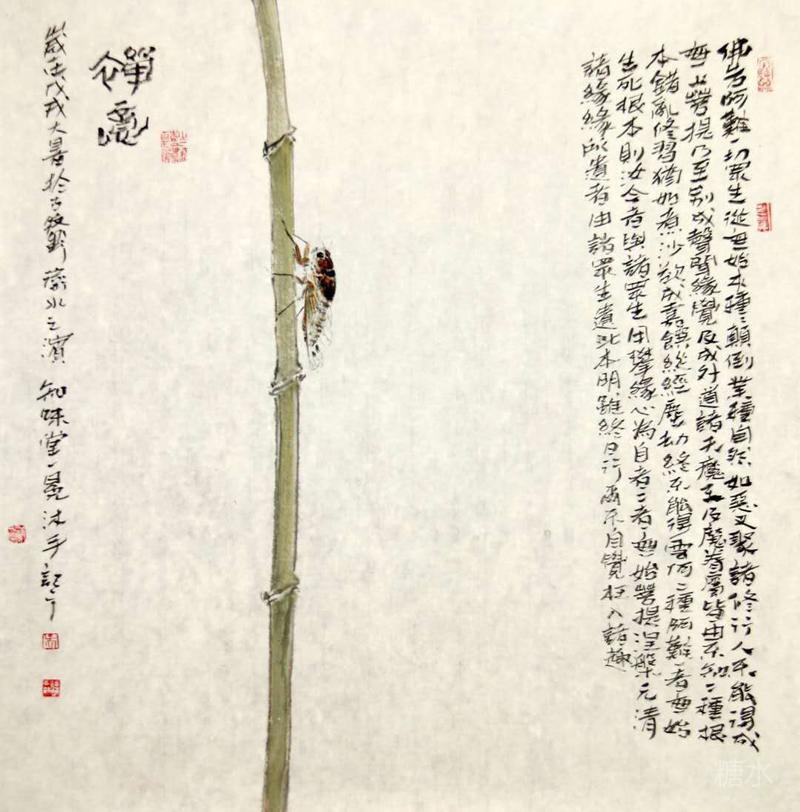 佛告阿難一切眾生從無始來種々顛倒業種自然如惡叉聚諸修行人不能得成
無上菩提乃至別成聲聞緣覺及成外道諸天魔王及魔眷屬皆由不知二種根
本錯亂修習猶如煮沙欲成嘉饌縱經塵劫終不能得雲何二種阿難者無始
生死根本則汝今者與諸眾生用攀緣心為自者二者無始菩提涅槃元清
諸緣緣所遺者由諸眾生遺此本明雖終日行而不自覺枉入諸趣
禪意
歲在戊戌大暑於古衛水之濱知味堂一晃沐手記
糖水